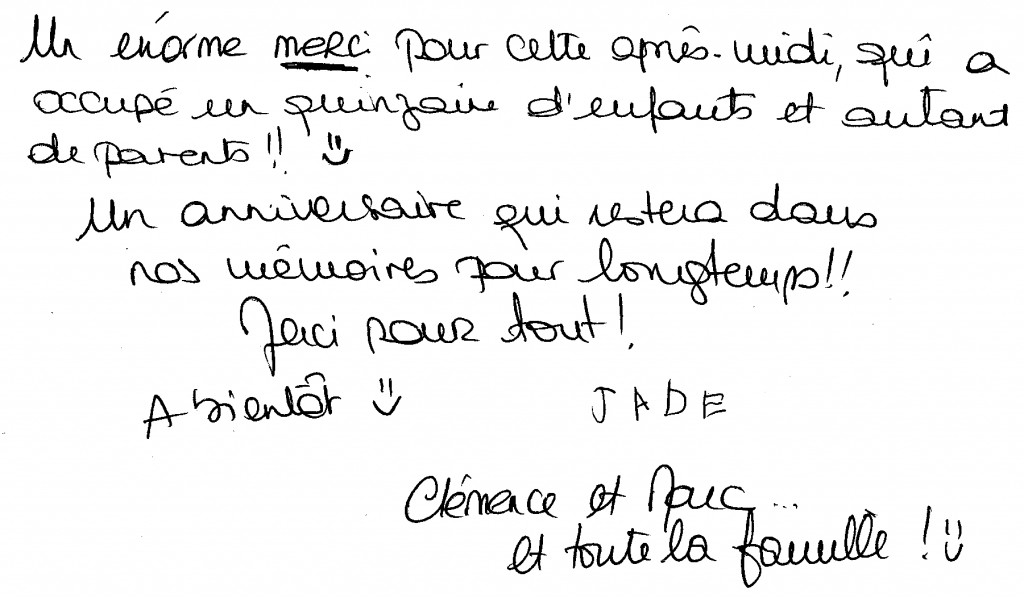 Un énorme merci pour cette après-midi, qui a
occupé un quinzaine d'enfants et autant
de parents !! :)
Un anniversaire qui restera dans
nos mémoires pour longtemps !!
Merci pour tout !
A bientôt :)
JADE
Clémence et Marc ...
et toute la famille ! :)